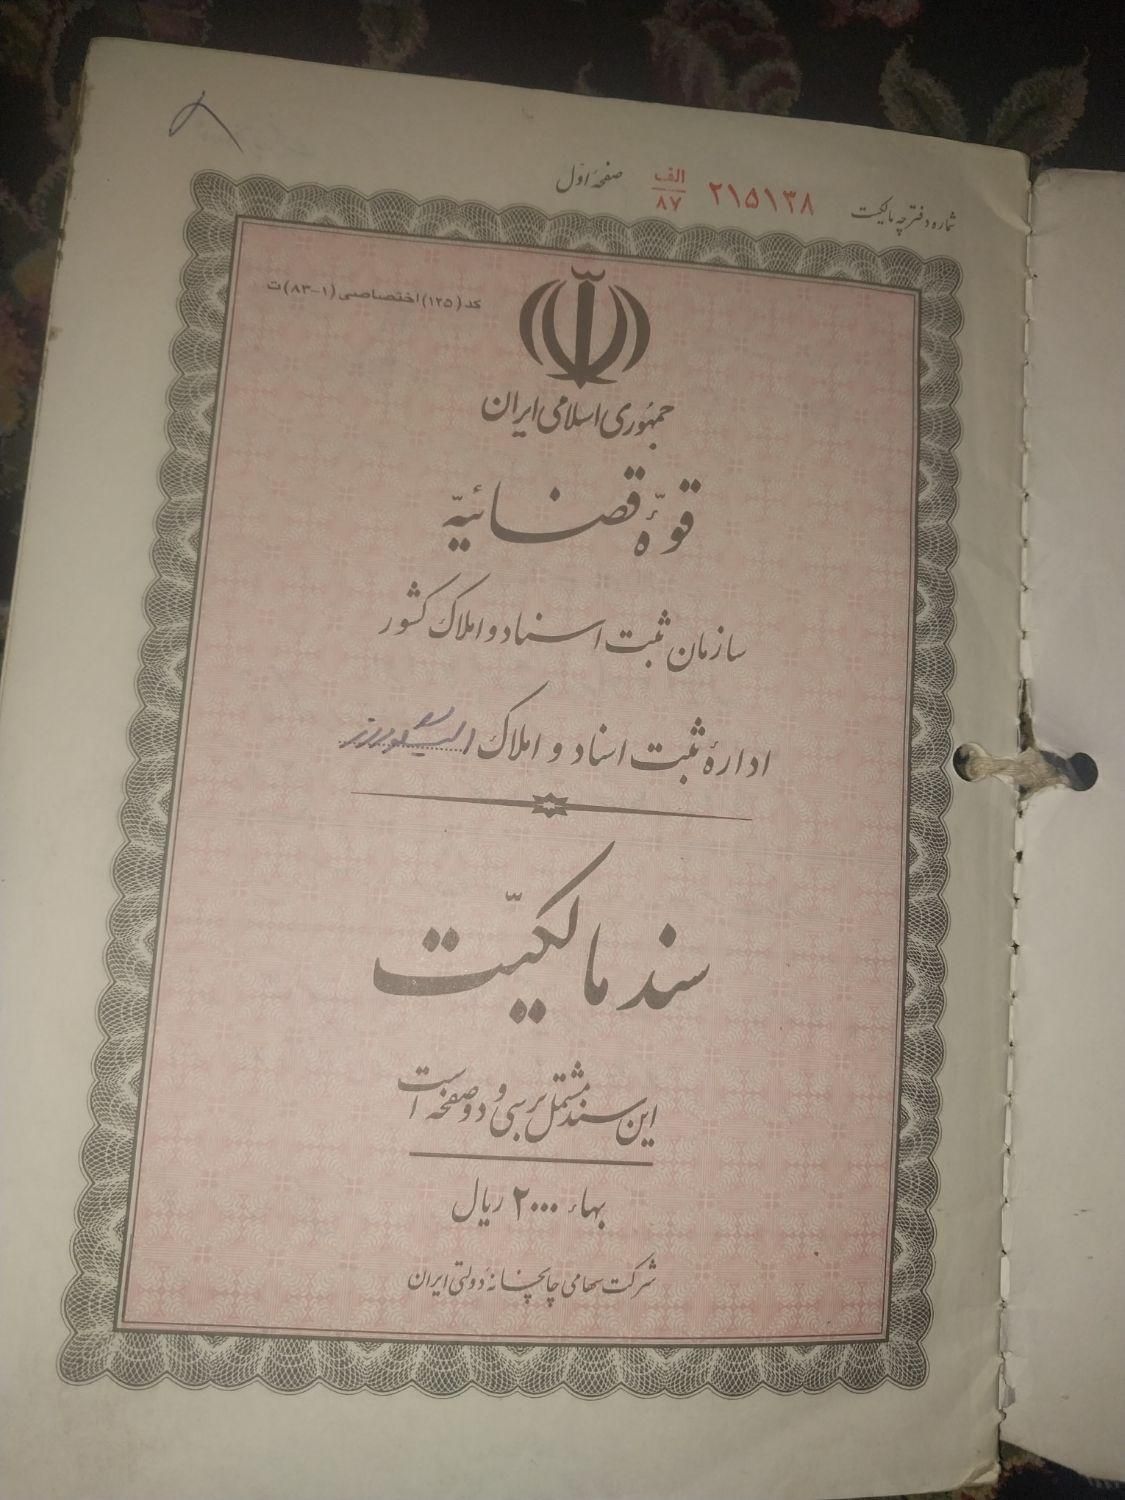 شماره دفترچه مالکیت ۲۱۵۱۳۸ الف/۸۷ صفحه اوّل
کد (۱۲۵) اختصاصی (۱-۸۳) ت
جمهوری اسلامی ایران
قوّهٔ قضائیّه
سازمان ثبت اسناد و املاک کشور
ادارهٔ ثبت اسناد و املاک
سند مالکیّت
این سند مشتمل بر سی و دو صفحه است
بهاء ۲۰۰۰ ریال
شرکت سهامی چاپخانهٔ دولتی ایران